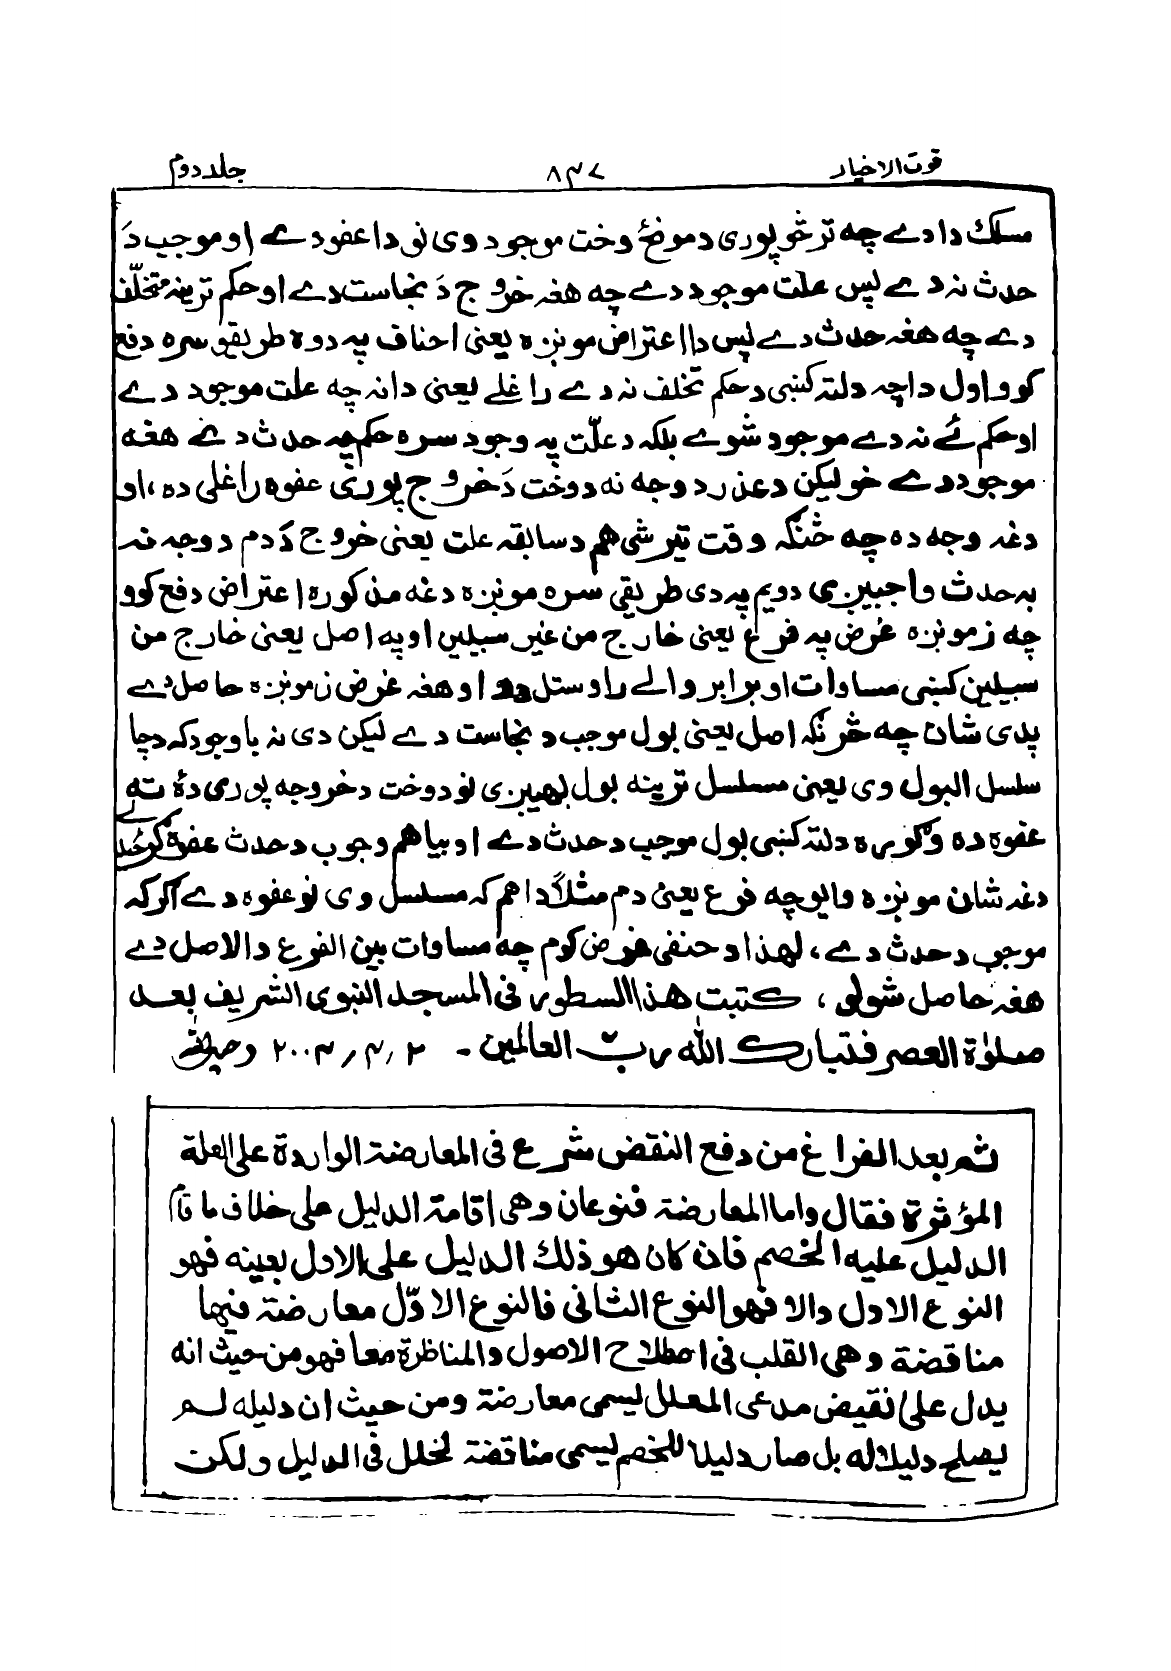 قوت الاخیار ۸۴۷ جلد دوم
مسلک دا دے چہ تر څو پوری د مونځ وخت موجود وی نو دا عفو دے او موجب دَ
حدث نہ دے لیس علت موجود دے چہ هغہ خروج دَ نجاست دے او حکم ترینہ متخلّف
دے چہ هغہ حدث دے لپس دا اعتراض مونږہ یعنی احناف پہ دوہ طریقو سرہ دفع
کوو اول دا چہ دلتہ کښی د حکم تخلف نہ دے راغلے یعنی دا نہ چہ علت موجود دے
او حکم ئے نہ دے موجود شوے بلکہ د علّت پہ وجود سرہ حکم چہ حدث دے هغہ
موجود دے خو لیکن د عذر د وجہ نہ د وخت دَ خروج پوری عفوہ راغلی دہ، او
دغہ وجہ دہ چہ څنګہ وقت تیر شی هم د سابقہ علت یعنی خروج دَ دم د وجہ نہ
بہ حدث واجبیږی دویم پہ دی طریقی سرہ مونږہ دغہ مذکورہ اعتراض دفع کوو
چہ زمونږہ غرض پہ فرع یعنی خارج من غیر سبیلین او پہ اصل یعنی خارج من
سبیلین کښی مساوات او برابر والے راوستل دی او هغہ غرض زمونږہ حاصل دے
پدی شان چہ څرنګہ اصل یعنی بول موجب د نجاست دے لیکن دی نہ باوجود کہ د چا
سلسل البول وی یعنی مسلسل ترینہ بول بهیږی نو د وخت د خروجہ پوری دۂ تہ
عفوہ دہ وګورہ دلتہ کښی بول موجب د حدث دے او بیا هم وجوب د حدث عفوہ
دغہ شان مونږہ وایو چہ فرع یعنی دم مثلاً دا هم کہ مسلسل وی نو عفوہ دے اګر کہ
موجب د حدث دے، لهذا د حنفی غرض کوم چہ مساوات بین الفرع والاصل دے
هغہ حاصل شولو، کتبت هذا السطور فی المسجد النبوی الشریف بعد
صلوٰۃ العصر فتبارک اللہ رب العالمین ۔ ۲؍۴؍۲۰۰۳
ثم بعد الفراغ من دفع النقض شرع فی المعارضۃ الواردۃ علی العلۃ
المؤثرۃ فقال واما المعارضۃ فنوعان وهی اقامۃ الدلیل علی خلاف ما قام
الدلیل علیه الخصم فان کان هو ذلک الدلیل علی الاول بعینہ فهو
النوع الاول والا فهو النوع الثانی فالنوع الاوّل معارضۃ فیها
مناقضۃ وهی القلب فی اصطلاح الاصول والمناظرۃ معا فهو من حیث انہ
یدل علی نقیض مدعی المعلل لیسمی معارضۃ ومن حیث ان دلیلہ لم
یصلح دلیلا لہ بل صار دلیلا للخصم لیسمی مناقضۃ لخلل فی الدلیل ولکن